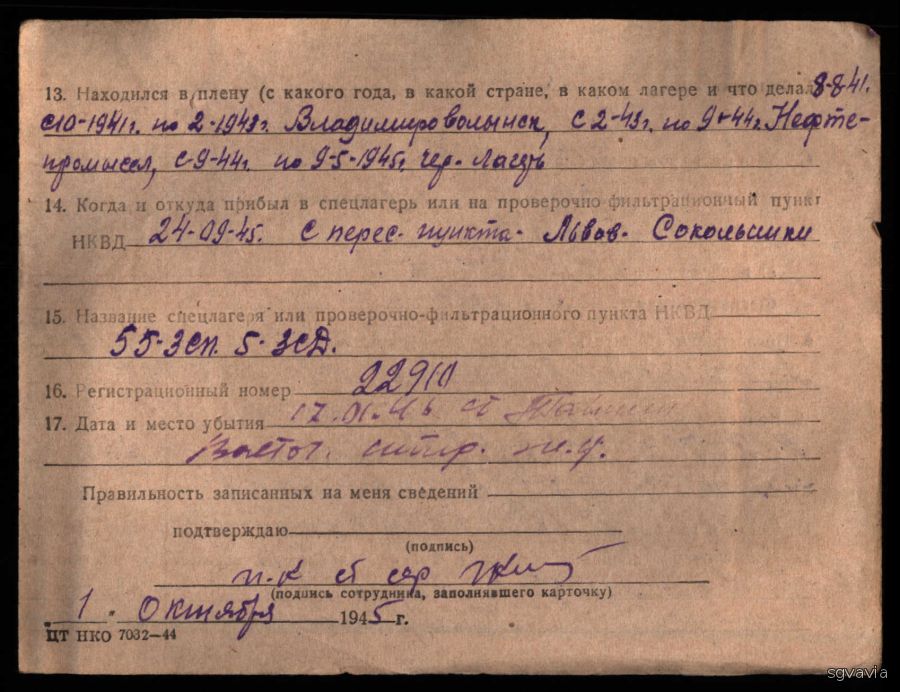 13. Находился в плену (с какого года, в какой стране, в каком лагере и что делал 8-8-41.
с 10-1941г. по 2-1943г. Владимироволынск, с 2-43г. по 9-44г. Нефте-
промысел, с-9-44г. по 9-5-1945г.
14. Когда и откуда прибыл в спецлагерь или на проверочно-фильтрационный пункт
НКВД 24-09-45. с перес. пункта- Львов- Сокольники
15. Название спецлагеря или проверочно-фильтрационного пункта НКВД
55-Зсп. 5-ЗсД.
16. Регистрационный номер 22910
17. Дата и место убытия 17.01.46 ст
Правильность записанных на меня сведений
подтверждаю
(подпись)
(подпись сотрудника, заполнявшего карточку)
„ 1 " Октября 1945 г.
ЦТ НКО 7032—44
sgvavia